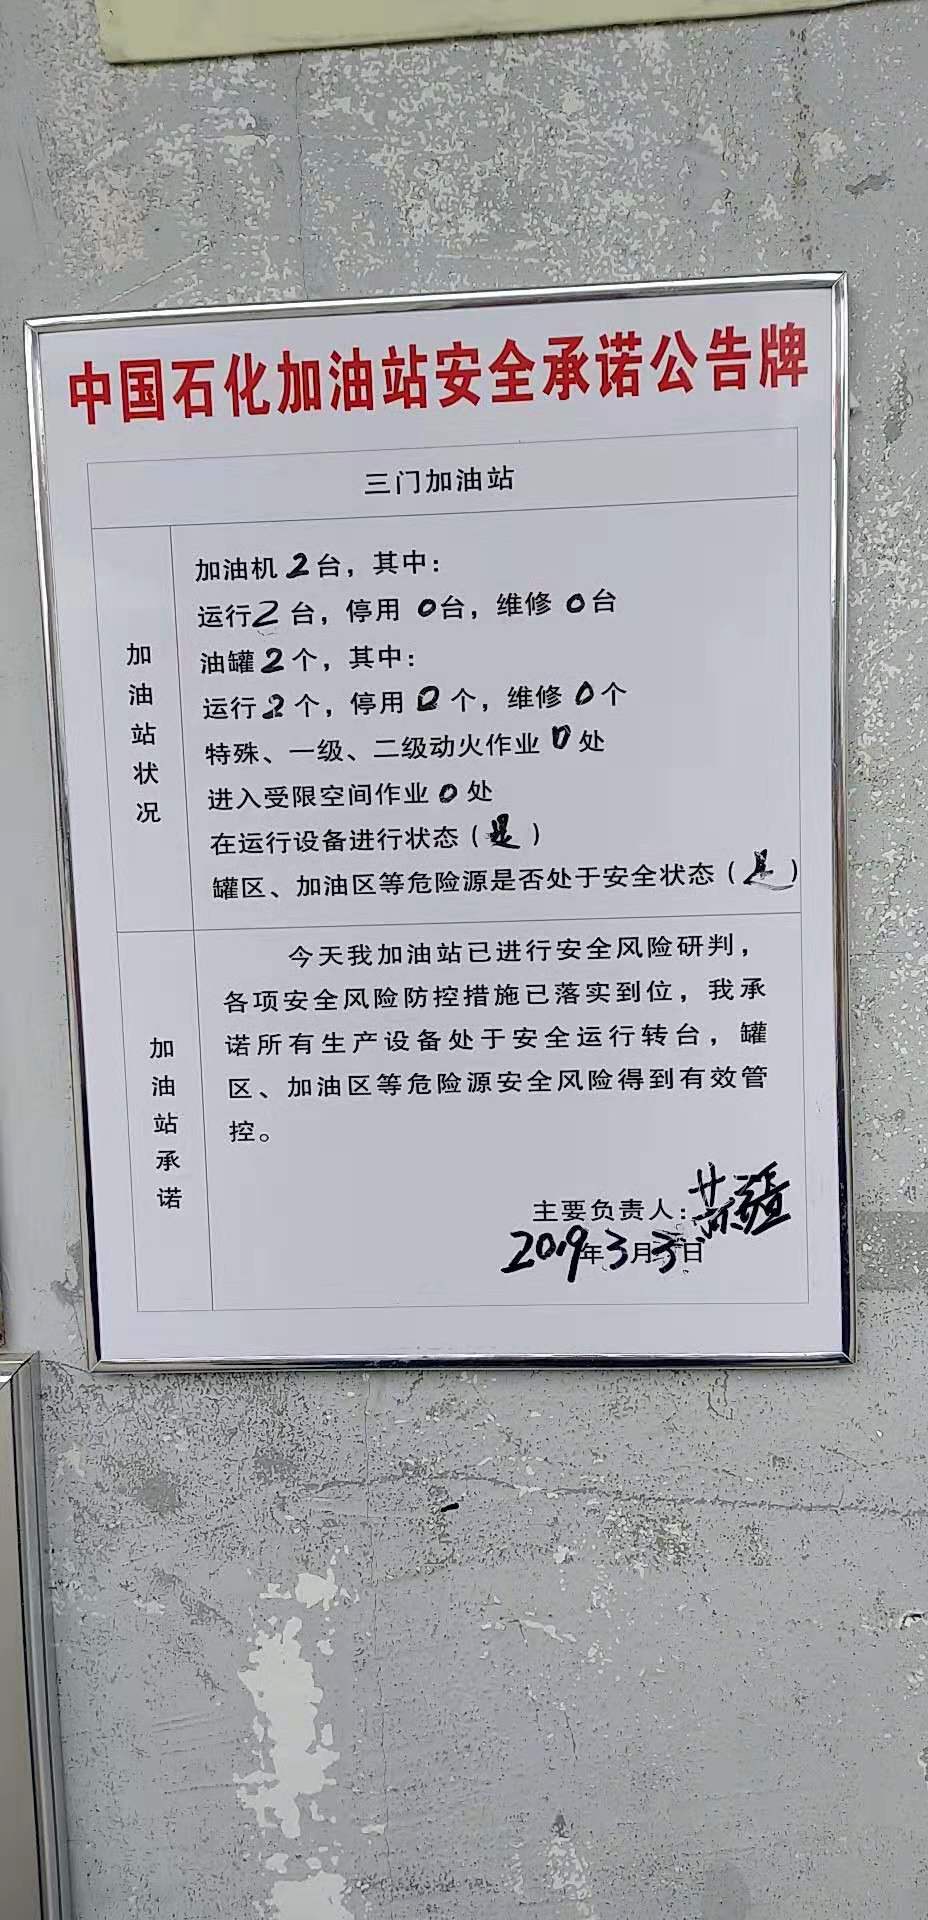 中国石化加油站安全承诺公告牌
三门加油站
加油站状况
加油机 2 台，其中：
运行 2 台，停用 0 台，维修 0 台
油罐 2 个，其中：
运行 2 个，停用 0 个，维修 0 个
特殊、一级、二级动火作业 0 处
进入受限空间作业 0 处
在运行设备进行状态（是）
罐区、加油区等危险源是否处于安全状态（是）
加油站承诺
今天我加油站已进行安全风险研判，
各项安全风险防控措施已落实到位，我承
诺所有生产设备处于安全运行转台，罐
区、加油区等危险源安全风险得到有效管
控。
主要负责人：
2019年3月3日